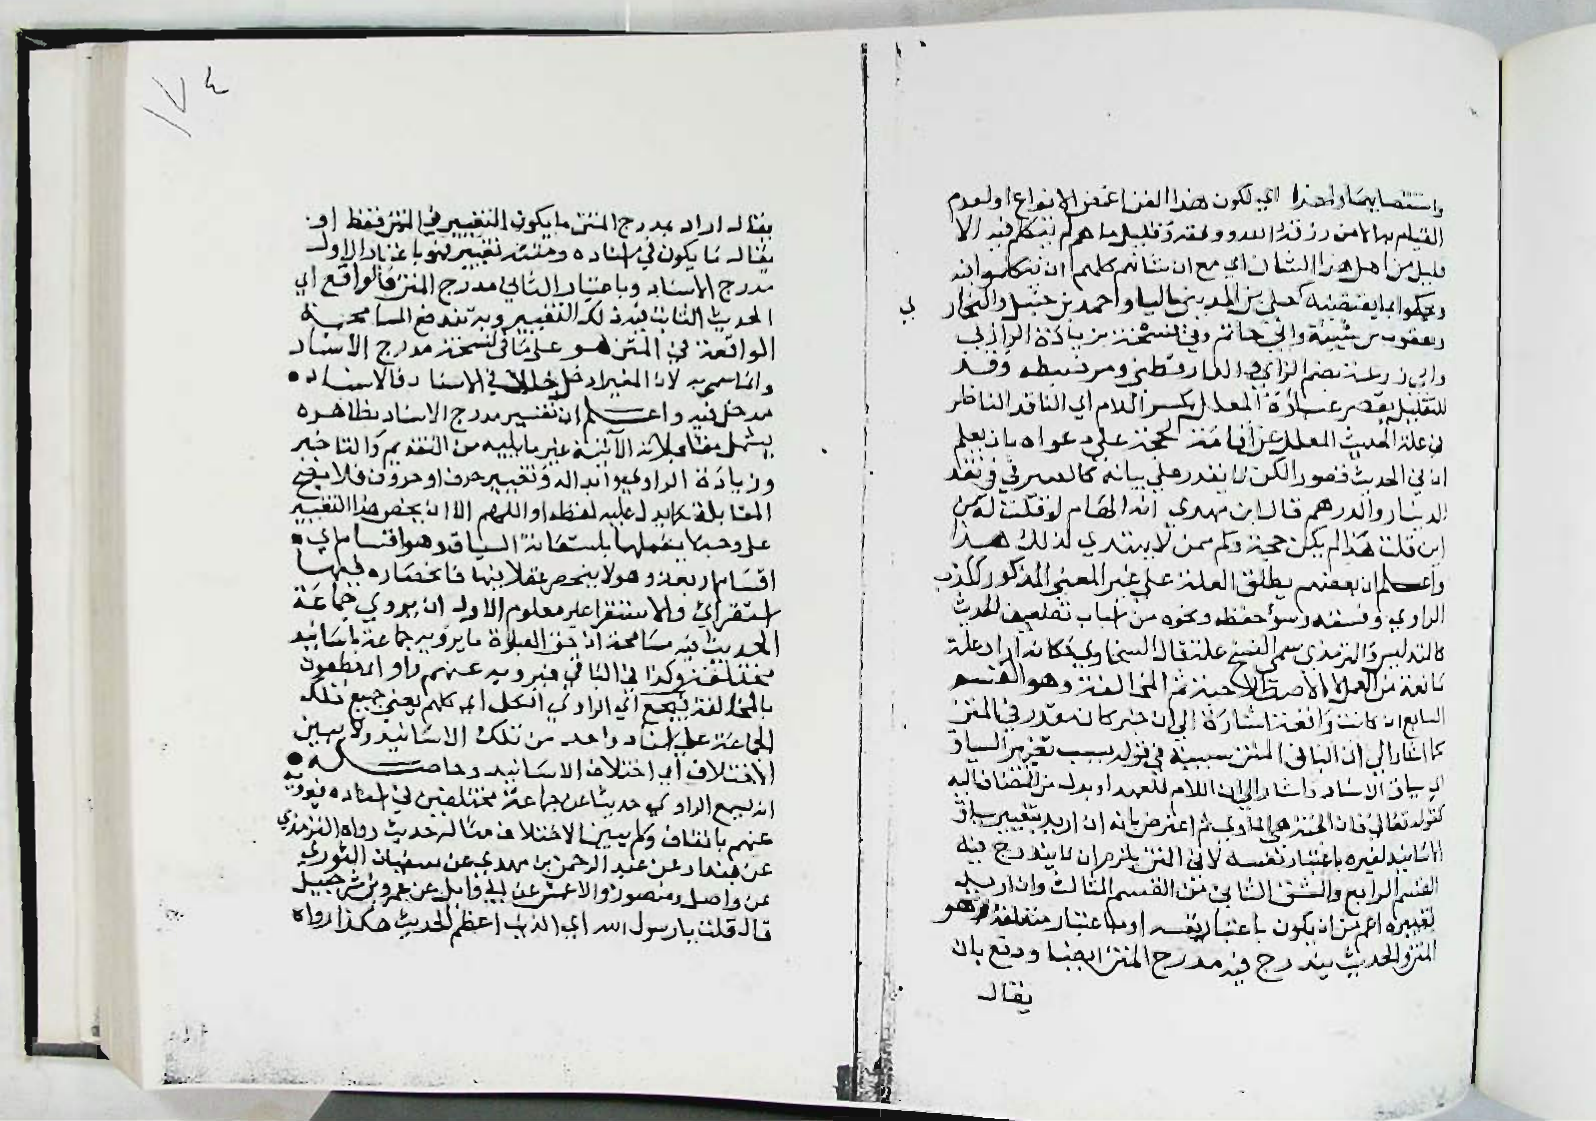 واستقصائهما ولهذا اي لكون هذا الفن اغمض الانواع اولعدم
القيام بها الا من رزقه الله وقليل ما هم لم يتكلم فيه الا
قليل من اهل هذا الشان اي مع ان شانهم كلهم ان يتكلموا فيه
ويحكموا بما يقتضيه كعلي بن المديني واحمد بن حنبل والبخاري
ويعقوب بن شيبة وابي حاتم وفي نسخة بزيادة الرازي
وابي زرعة بضم الزاي والدارقطني ومر ضبطه وقد
للتقليل يقصر عبارة المعلل بكسر اللام اي الناقد الناظر
في علة الحديث المعلل عن اقامة الحجة على دعواه بان يعلم
ان في الحديث قصورا لكن لا يقدر على بيانه كالصيرفي في نقد
الدينار والدرهم قال ابن مهدي انه الهام لو قلت له من
اين قلت هذا لم يكن حجة وكم ممن لا يهتدي لذلك هذا
واعلم ان بعضهم يطلق العلة على غير المعنى المذكور ككذب
الراوي وفسقه وسوء حفظه ونحوه من اسباب تضعيف الحديث
كالتدليس والترمذي سمى النسخ علة قال السخاوي فكانه اراد علة
مانعة من العمل لا الاصطلاحية ثم المخالفة وهو القسم
السابع ان كانت واقعة اشارة الى ان خبر كان مقدر في المتن
كما اشار الى ان الباء في المتن سببية في قوله بسبب تغيير السياق
اي سياق الاسناد واشار الى ان اللام للعهد او بدل من المضاف اليه
كقوله تعالى فان الجنة هي الماوى ثم اعترض بانه ان اريد بتغيير سياق
الاسانيد لغيره باعتبار نفسه لا في المتن يلزم ان لا يندرج فيه
القسم الرابع والشق الثاني من القسم الثالث وان اريد
تغييره اعم من ان يكون باعتبار نفسه او باعتبار متعلقه وهو
المتن والحديث يندرج فيه مدرج المتن ايضا ودفع بان
يقال
١٧٤
يقال اراد بمدرج المتن ما يكون التغيير في المتن فقط او
يقال ما يكون في اسناده ومتنه تغيير فهو باعتبار الاول
مدرج الاسناد وباعتبار الثاني مدرج المتن فالواقع اي
الحديث الثابت فيه ذلك التغيير وبه تندفع المسامحة
الواقعة في المتن هو على ما في نسخة مدرج الاسناد
وانما سمي به لان المغير ادخل خللا في الاسناد فالاسناد
مدخل فيه واعلم ان تفسير مدرج الاسناد بظاهره
يشمل مقابلاته الآتية غير ما يليه من التقديم والتاخير
وزيادة الراوي وابداله وتغيير حرف او حروف فلا يصح
المقابلة كما يدل عليه لفظه او اللهم الا ان يخص هذا التغيير
على وجه لا يشملها باستعانة السياق وهو اقسام اي
اقسام اربعة وهو لا ينحصر عقلا فيها فانحصاره فيها
استقرائي والاستقراء غير معلوم الاول ان يروي جماعة
الحديث فيه مسامحة اذ حق العبارة ما يرويه جماعة باسانيد
مختلفة وكذا في الثاني فيرويه عنهم راو المطعون
بالمخالفة فيجمع اي الراوي الكل اي كلهم يعني جميع تلك
الجماعة على اسناد واحد من تلك الاسانيد ولا يبين
الاختلاف اي اختلاف الاسانيد وحاصله
ان يسمع الراوي حديثا عن جماعة مختلفين في اسناده فيرويه
عنهم باتفاق ولم يبين الاختلاف مثاله حديث رواه الترمذي
عن بندار عن عبد الرحمن بن مهدي عن سفيان الثوري
عن واصل ومنصور والاعمش عن ابي وائل عن عمرو بن شرحبيل
قال قلت يارسول الله اي الذنب اعظم الحديث هكذا رواه